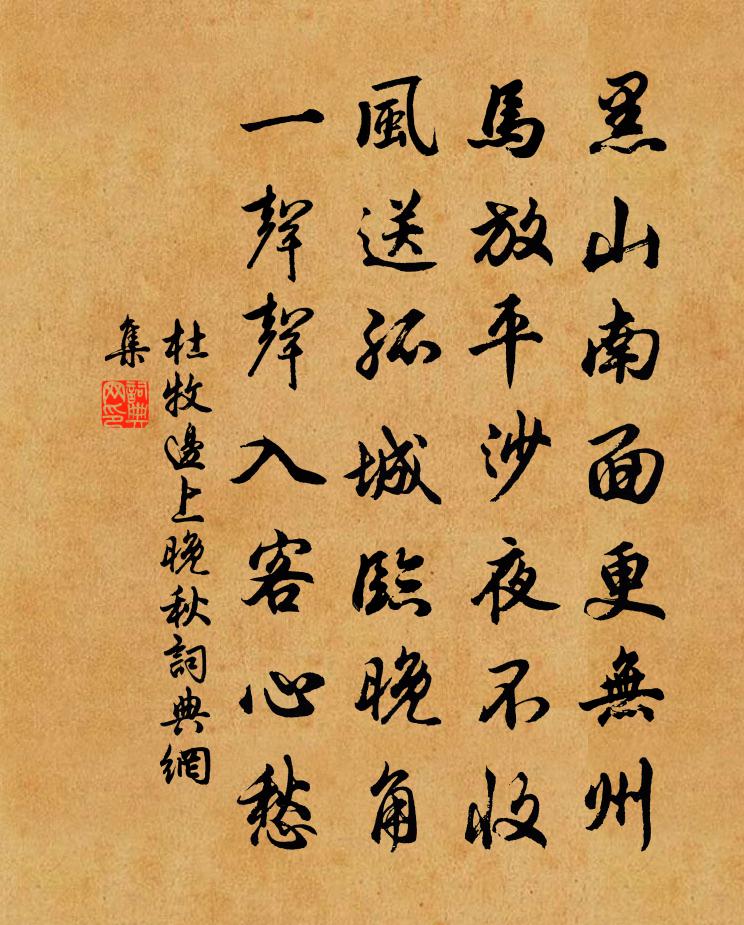 黑山南面更無州
馬放平沙夜不收
風送孤城臨晚角
一聲聲入客心愁
杜牧邊上晚秋詞典網
集
詞典
网印